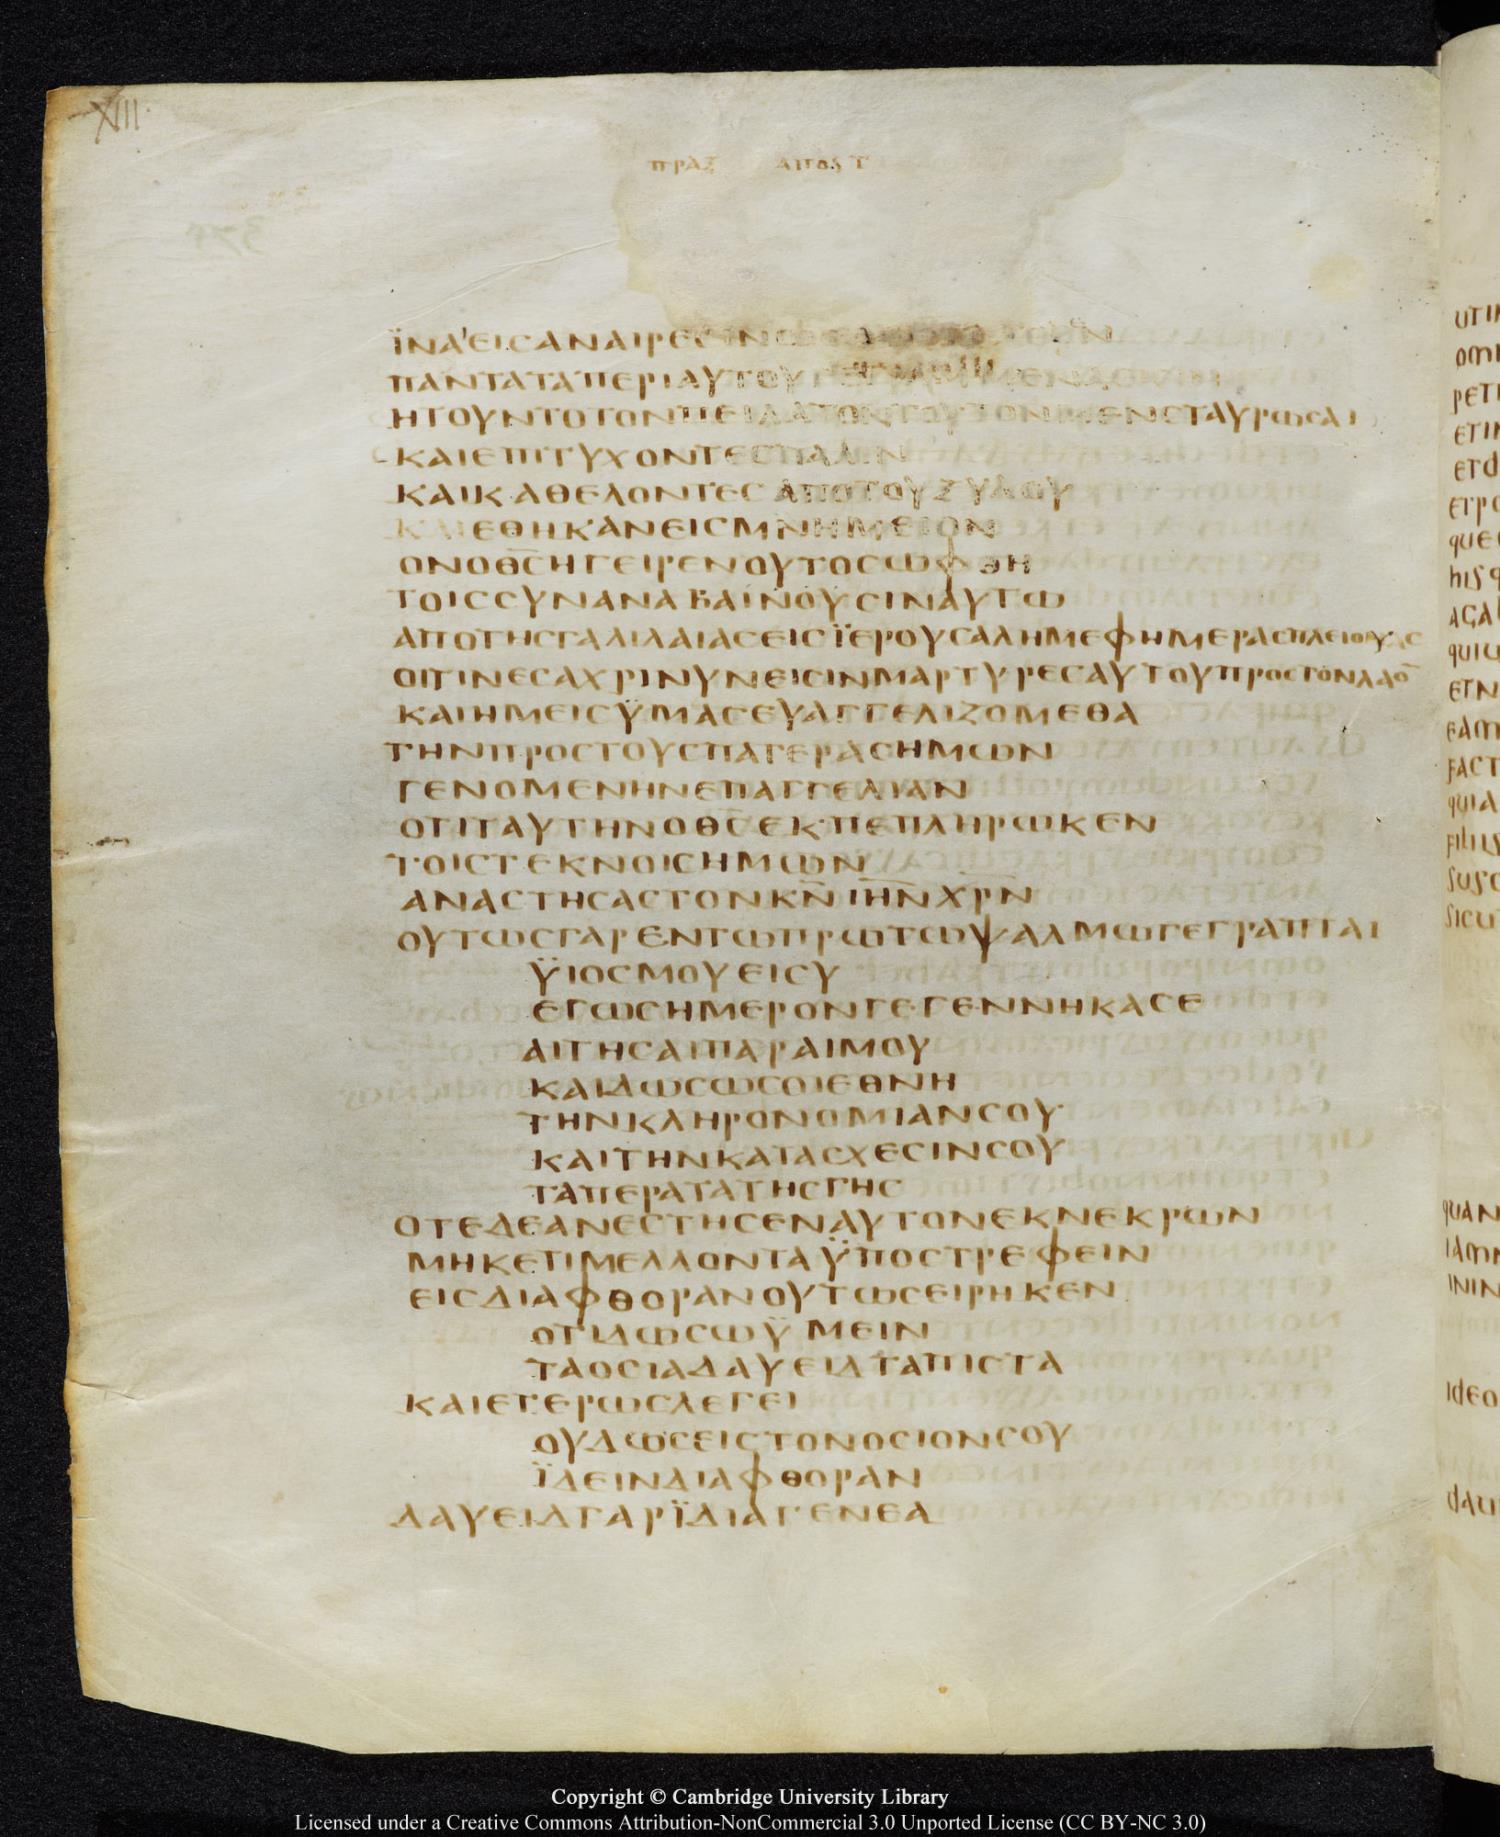 XIII
ΠΡΑΞ ΑΠΟΣΤ
ΪΝΑ ΕΙΣ ΑΝΑΙΡΕΣΙΝ
ΠΑΝΤΑ ΤΑ ΠΕΡΙ ΑΥΤΟΥ ΓΕΓΡΑΜΜΕΝΑ
ΗΤΟΥΝΤΟ ΤΟΝ ΠΕΙΛΑΤΟΝ ΤΟΥΤΟΝ ΜΕΝ ΣΤΑΥΡΩΣΑΙ
ΚΑΙ ΕΠΙΤΥΧΟΝΤΕΣ ΠΑΛΙΝ
ΚΑΙ ΚΑΘΕΛΟΝΤΕΣ ΑΠΟ ΤΟΥ ΞΥΛΟΥ
ΚΑΙ ΕΘΗΚΑΝ ΕΙΣ ΜΝΗΜΕΙΟΝ
ΟΝ Ο Θ̅Σ̅ ΗΓΕΙΡΕΝ ΟΥΤΟΣ ΩΦΘΗ
ΤΟΙΣ ΣΥΝΑΝΑΒΑΙΝΟΥΣΙΝ ΑΥΤΩ
ΑΠΟ ΤΗΣ ΓΑΛΙΛΑΙΑΣ ΕΙΣ ΪΕΡΟΥΣΑΛΗΜ ΕΦ ΗΜΕΡΑΣ ΠΛΕΙΟΝΑΣ
ΟΙΤΙΝΕΣ ΑΧΡΙ ΝΥΝ ΕΙΣΙΝ ΜΑΡΤΥΡΕΣ ΑΥΤΟΥ ΠΡΟΣ ΤΟΝ ΛΑΟ̅
ΚΑΙ ΗΜΕΙΣ ΫΜΑΣ ΕΥΑΓΓΕΛΙΖΟΜΕΘΑ
ΤΗΝ ΠΡΟΣ ΤΟΥΣ ΠΑΤΕΡΑΣ ΗΜΩΝ
ΓΕΝΟΜΕΝΗΝ ΕΠΑΓΓΕΛΙΑΝ
ΟΤΙ ΤΑΥΤΗΝ Ο Θ̅Σ̅ ΕΚΠΕΠΛΗΡΩΚΕΝ
ΤΟΙΣ ΤΕΚΝΟΙΣ ΗΜΩΝ
ΑΝΑΣΤΗΣΑΣ ΤΟΝ Κ̅Ν̅ ΙΗ̅Ν̅ ΧΡ̅Ν̅
ΟΥΤΩΣ ΓΑΡ ΕΝ ΤΩ ΠΡΩΤΩ ΨΑΛΜΩ ΓΕΓΡΑΠΤΑΙ
ΫΙΟΣ ΜΟΥ ΕΙ ΣΥ
ΕΓΩ ΣΗΜΕΡΟΝ ΓΕΓΕΝΝΗΚΑ ΣΕ
ΑΙΤΗΣΑΙ ΠΑΡ ΑΙΜΟΥ
ΚΑΙ ΔΩΣΩ ΣΟΙ ΕΘΝΗ
ΤΗΝ ΚΛΗΡΟΝΟΜΙΑΝ ΣΟΥ
ΚΑΙ ΤΗΝ ΚΑΤΑΣΧΕΣΙΝ ΣΟΥ
ΤΑ ΠΕΡΑΤΑ ΤΗΣ ΓΗΣ
ΟΤΕ ΔΕ ΑΝΕΣΤΗΣΕΝ ΑΥΤΟΝ ΕΚ ΝΕΚΡΩΝ
ΜΗΚΕΤΙ ΜΕΛΛΟΝΤΑ ΫΠΟΣΤΡΕΦΕΙΝ
ΕΙΣ ΔΙΑΦΘΟΡΑΝ ΟΥΤΩΣ ΕΙΡΗΚΕΝ
ΟΤΙ ΔΩΣΩ ΫΜΕΙΝ
ΤΑ ΟΣΙΑ ΔΑΥΕΙΔ ΤΑ ΠΙΣΤΑ
ΚΑΙ ΕΤΕΡΩΣ ΛΕΓΕΙ
ΟΥ ΔΩΣΕΙΣ ΤΟΝ ΟΣΙΟΝ ΣΟΥ
ΪΔΕΙΝ ΔΙΑΦΘΟΡΑΝ
ΔΑΥΕΙΔ ΓΑΡ ΪΔΙΑ ΓΕΝΕΑ
Copyright © Cambridge University Library
Licensed under a Creative Commons Attribution-NonCommercial 3.0 Unported License (CC BY-NC 3.0)